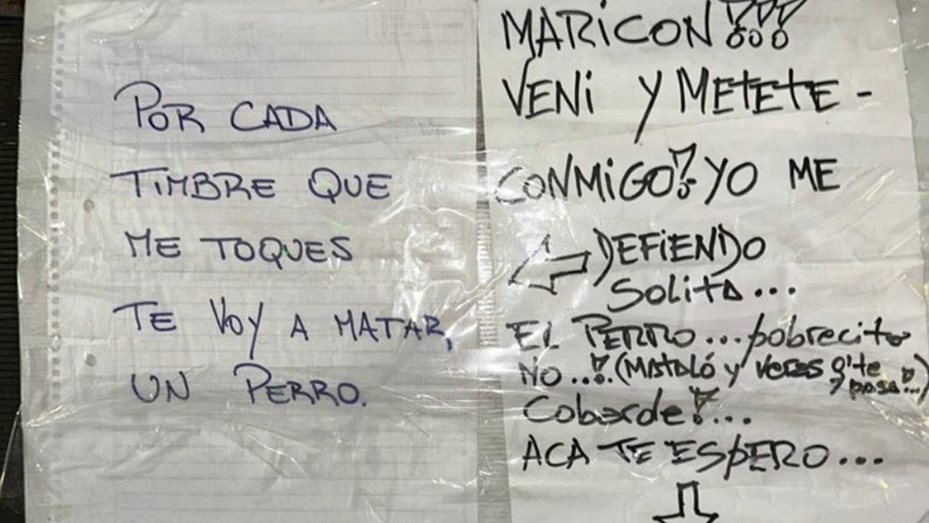 POR CADA
TIMBRE QUE
ME TOQUES
TE VOY A MATAR,
UN PERRO.
MARICON!!!
VENI Y METETE -
CONMIGO! YO ME
DEFIENDO
SOLITA...
EL PERRO... pobrecito
NO..! (MATALÓ y veras q' te
pasa!..)
Cobarde!...
ACA TE ESPERO...